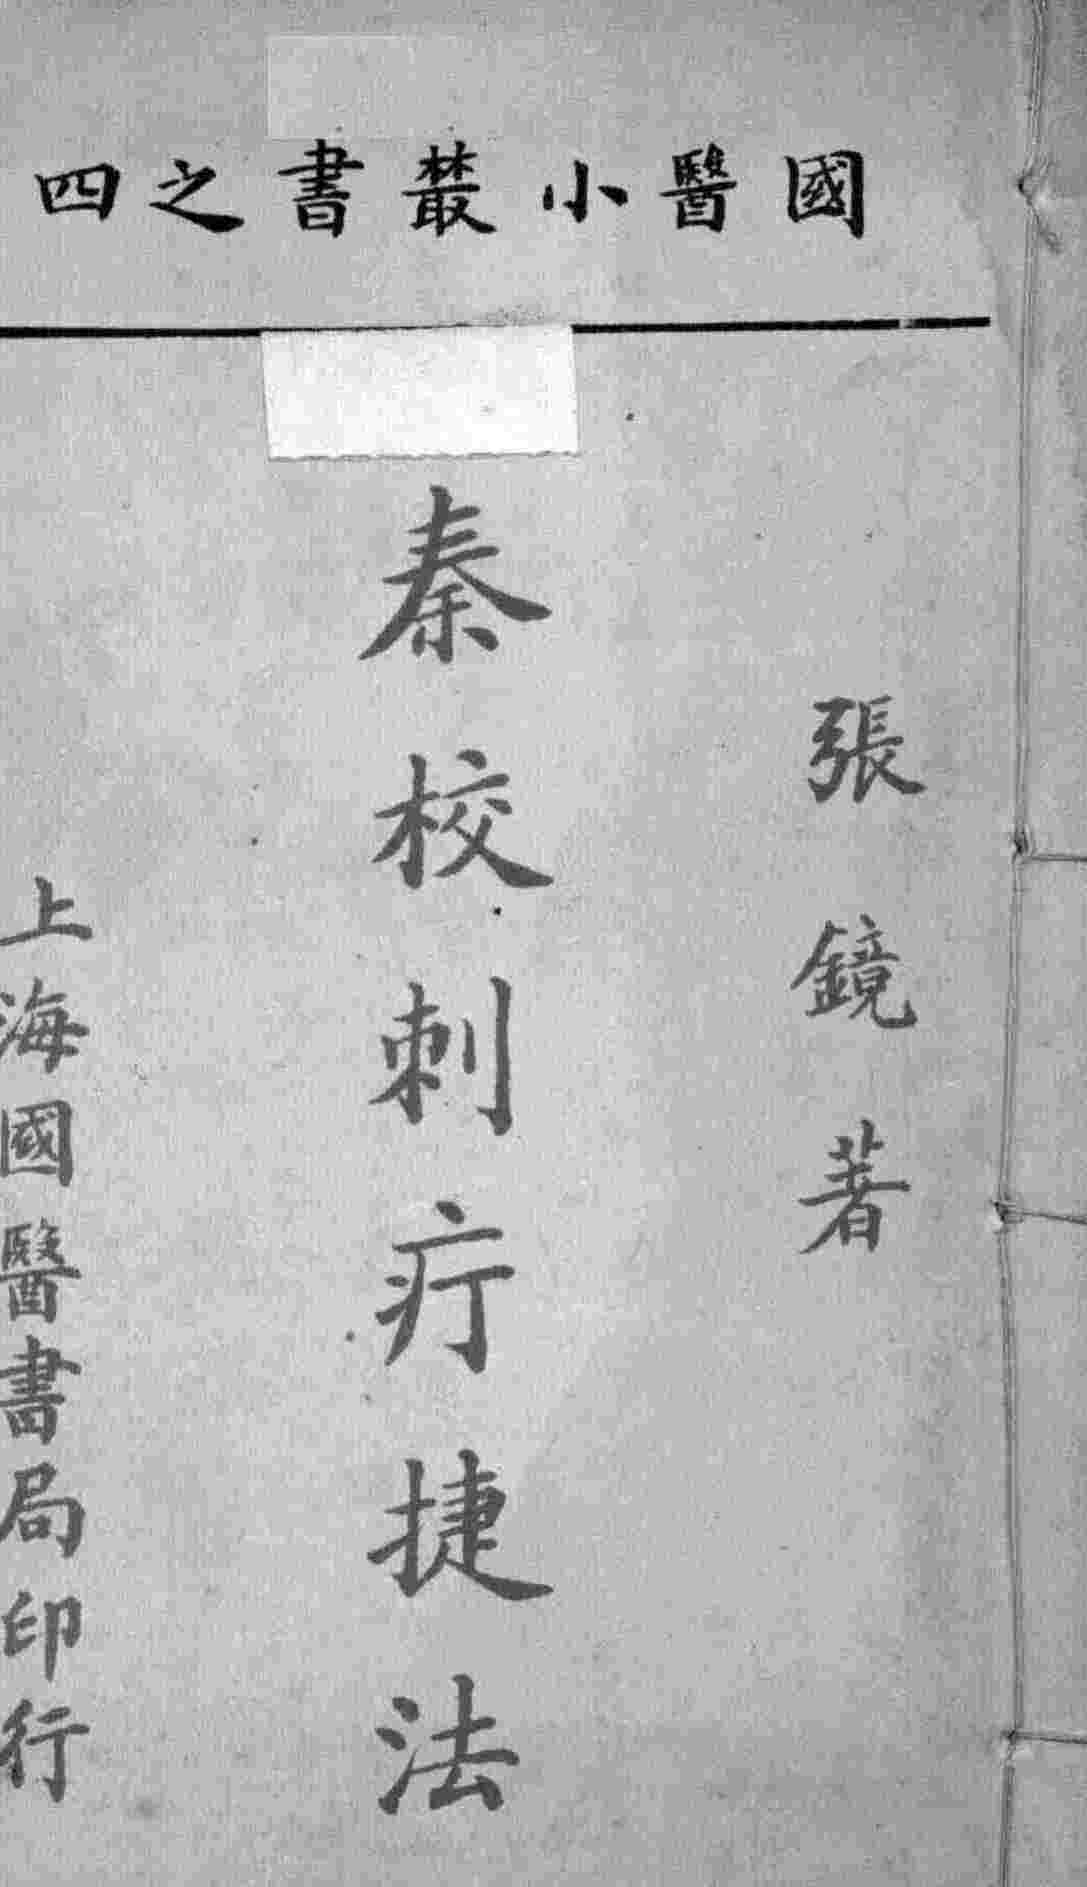 國醫小叢書之四
張鏡著
秦校刺疔捷法
上海國醫書局印行